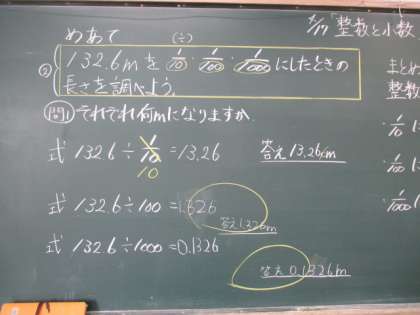 4/17 「整数と小数
めあて (÷)
② 132.6mを 1/10・1/100・1/1000 にしたときの
長さを調べよう。
問1 それぞれ何mになりますか
式 132.6÷1/10=13.26 答え 13.26m
10
式 132.6÷100=1.326
答え1.326m
式 132.6÷1000=0.1326
答え 0.1326m
まとめ
整数
・1/10
・1/100
・1/1000